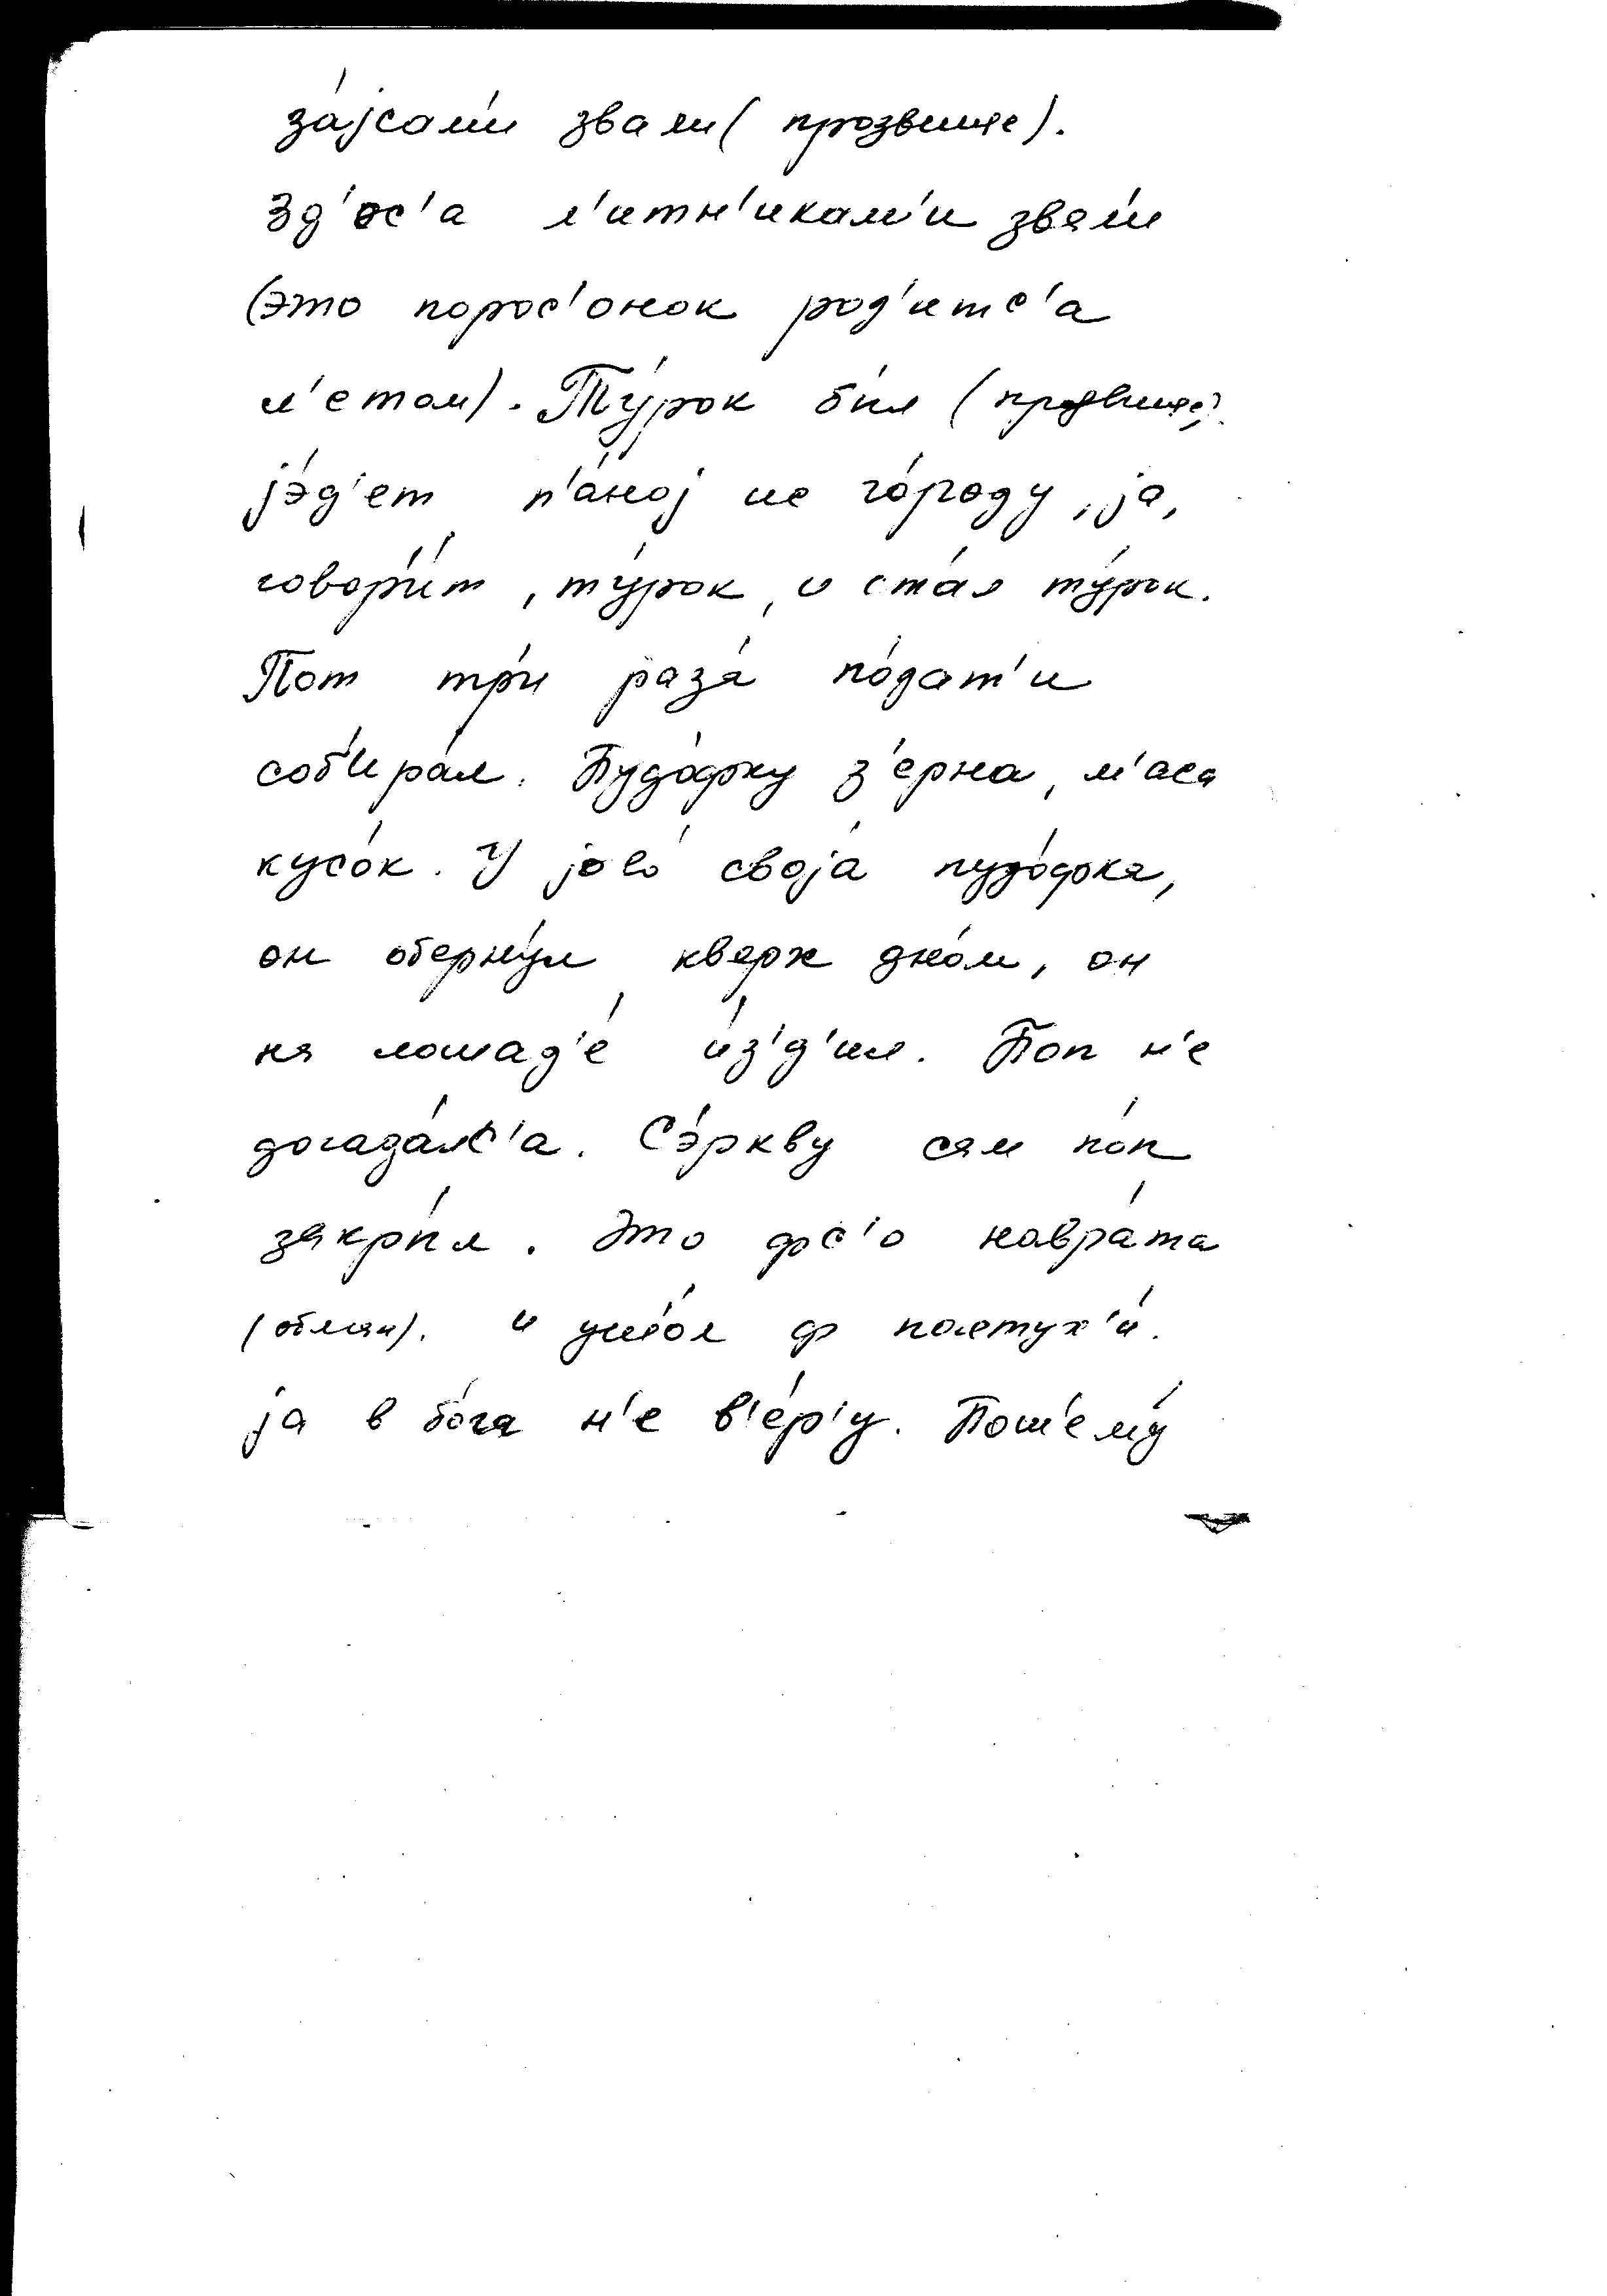 за́јсам'и звали (прозвище).
Зд'ес'а л'итн'икам'и звал'и
(это порос'онок род'итс'а
л'етом). Ту́рок бы́л (прозвище).
јэ́д'ет п'а́ној из го́роду, ја,
говор'и́т, ту́рок, и ста́л ту́рок.
Поп тр'и раза́ по́дат'и
соб'ира́л. Пудо́фку з'ерна, м'аса
кусо́к. У јово́ своја́ пудо́фка,
он оберну́л кверх дно́м, он
на лошад'е́ и́з'д'ил. Поп н'е
догада́лс'а. Сэ́ркву сам по́п
закры́л. Это фс'о навра́та
(обман). и ушо́л ф пастух'и́.
ја в бо́га н'е в'е́р'у. Пош'ему́